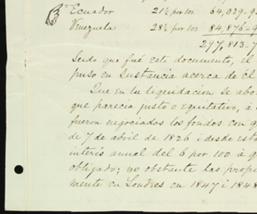 Ecuador 21½ por 100 64,029.9
Venezuela 28½ por 100 84,876=9
297,813.7
Leido que fué este documento, el
puso en sustancia acerca de el
Que en la liquidacion se abo
que parecia justo e equitativo, á
fueron negociados los fondos con q
de 7 de abril de 1826 i desde esta
interés anual del 6 por 100 á q
obligado; no obstante las prope
mente en Londres en 1847 i 1848